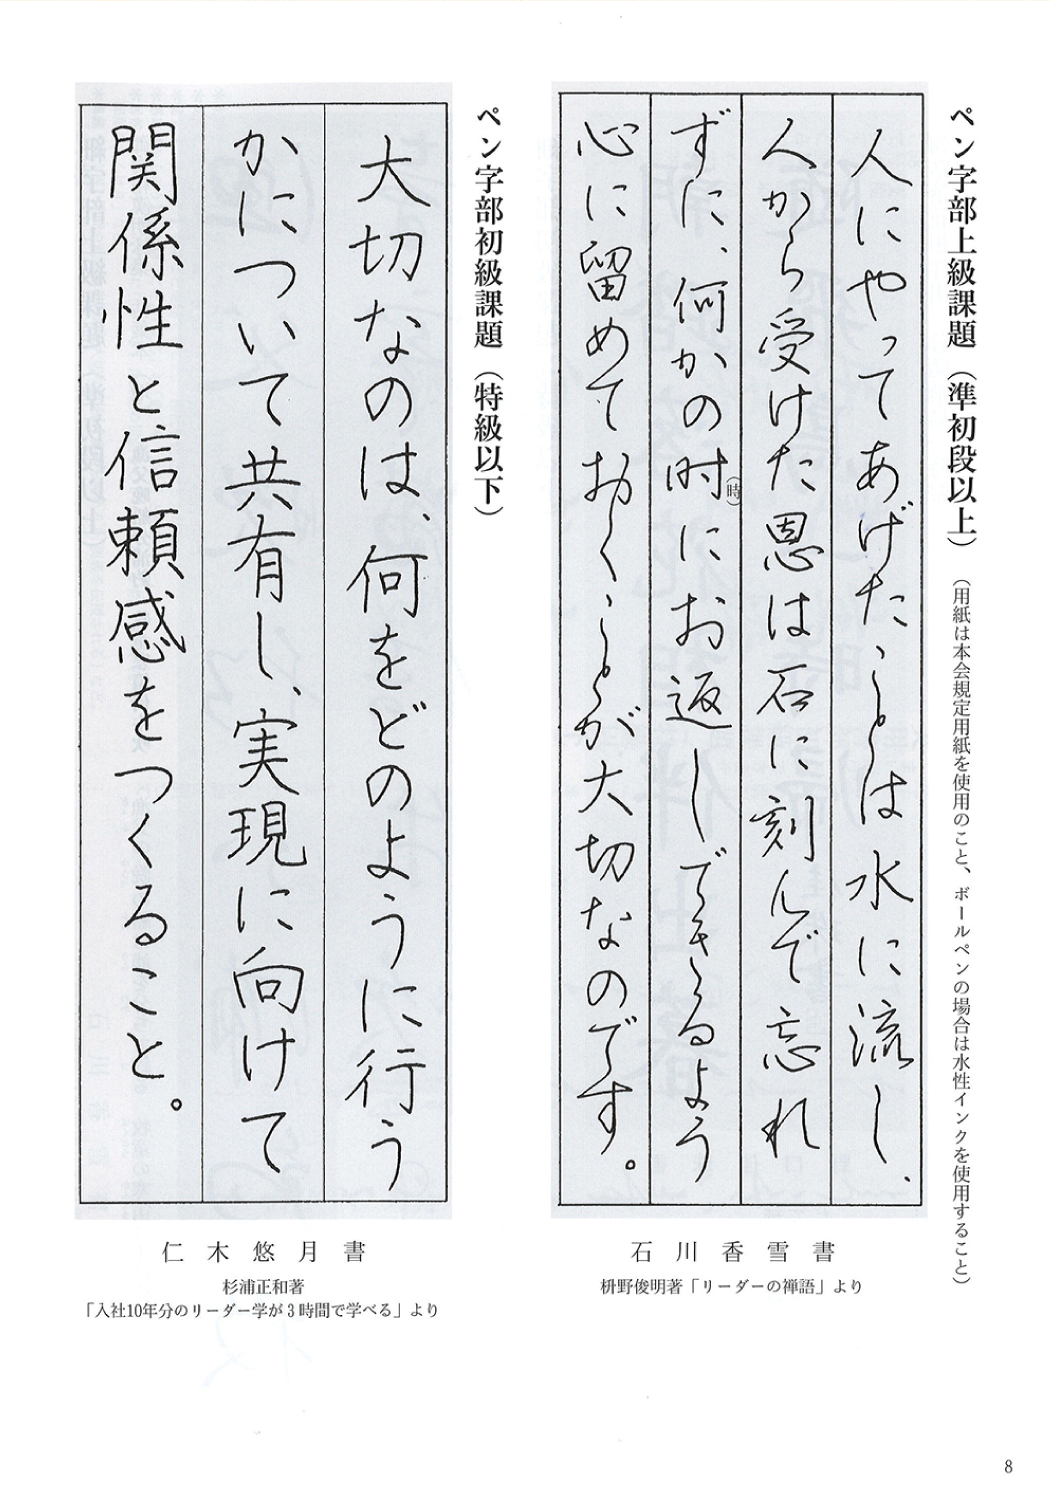 ペン字部上級課題（準初段以上）（用紙は本会規定用紙を使用のこと、ボールペンの場合は水性インクを使用すること）
人にやってあげたことは水に流し、
人から受けた恩は石に刻んで忘れ
ずに、何かの时(時)にお返しできるよう
心に留めておくことが大切なのです。
石川香雪書
枡野俊明著「リーダーの禅語」より
ペン字部初級課題（特級以下）
大切なのは、何をどのように行う
かについて共有し、実現に向けて
関係性と信頼感をつくること。
仁木悠月書
杉浦正和著
「入社10年分のリーダー学が3時間で学べる」より
8